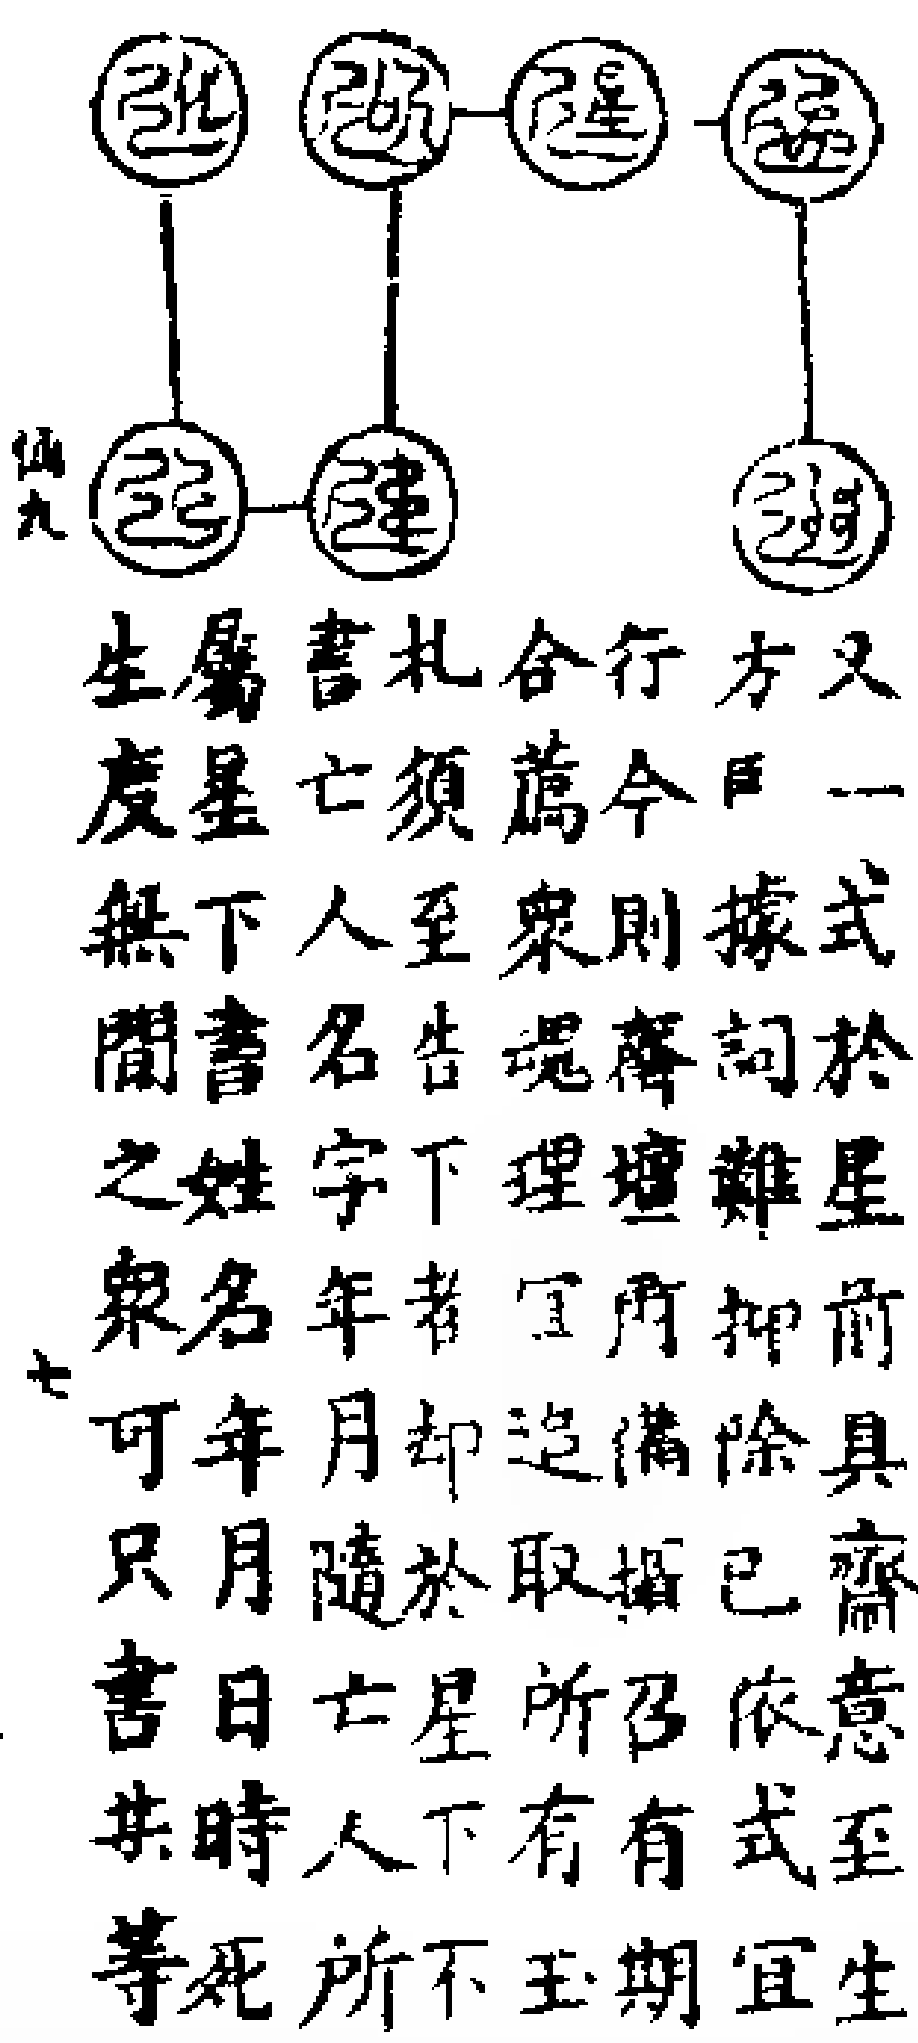 又一式於星前具齋意至生
方 據詞難抑除已依式宜
行今則 壇所備攝召有期
合薦眾魂理宜追取所有玉
札須至告下者却於星下不
書亡人名字年月隨亡人所
屬星下書姓名年月日時死
生度無間之眾可只書某等
仙九
七